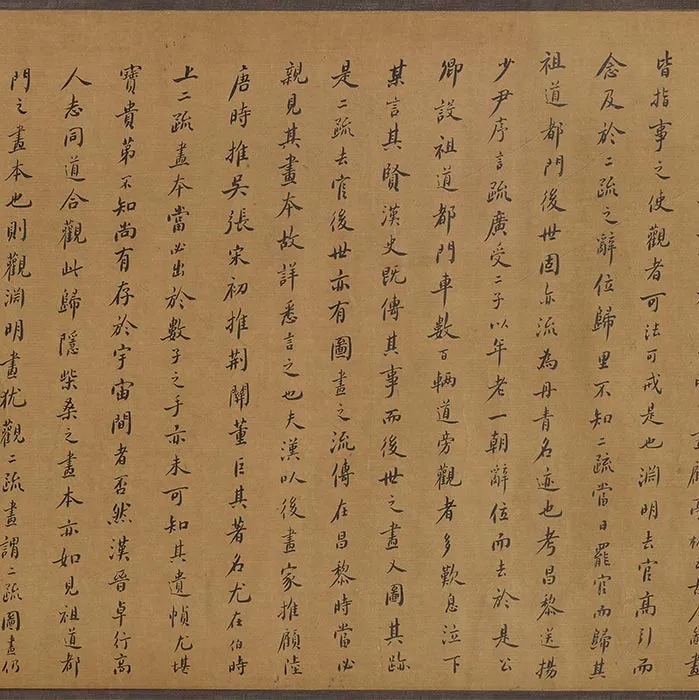 皆指事之使觀者可法可戒是也淵明去官高引而
念及於二疏之辭位歸里不知二疏當日罷官而歸其
祖道都門後世固亦流為丹青名迹也考昌黎送揚
少尹序言疏廣受二子以年老一朝辭位而去於是公
卿設祖道都門車數百輛道旁觀者多歎息泣下
言其賢漢史既傳其事而後世之畫又圖其跡
是二疏去官後世亦有圖畫之流傳在昌黎時當必
親見其畫本故詳悉言之也夫漢以後畫家推顧陸
唐時推吳張宋初推荊關董巨其著名尤在伯時
上二疏畫本當必出於數子之手亦未可知其遺幀尤堪
寶貴第不知尚有存於宇宙間者否然漢晉卓行高
人志同道合觀此歸隱柴桑之畫本亦如見祖道都
門之畫本也則觀淵明畫猶觀二疏畫謂二疏圖畫仍